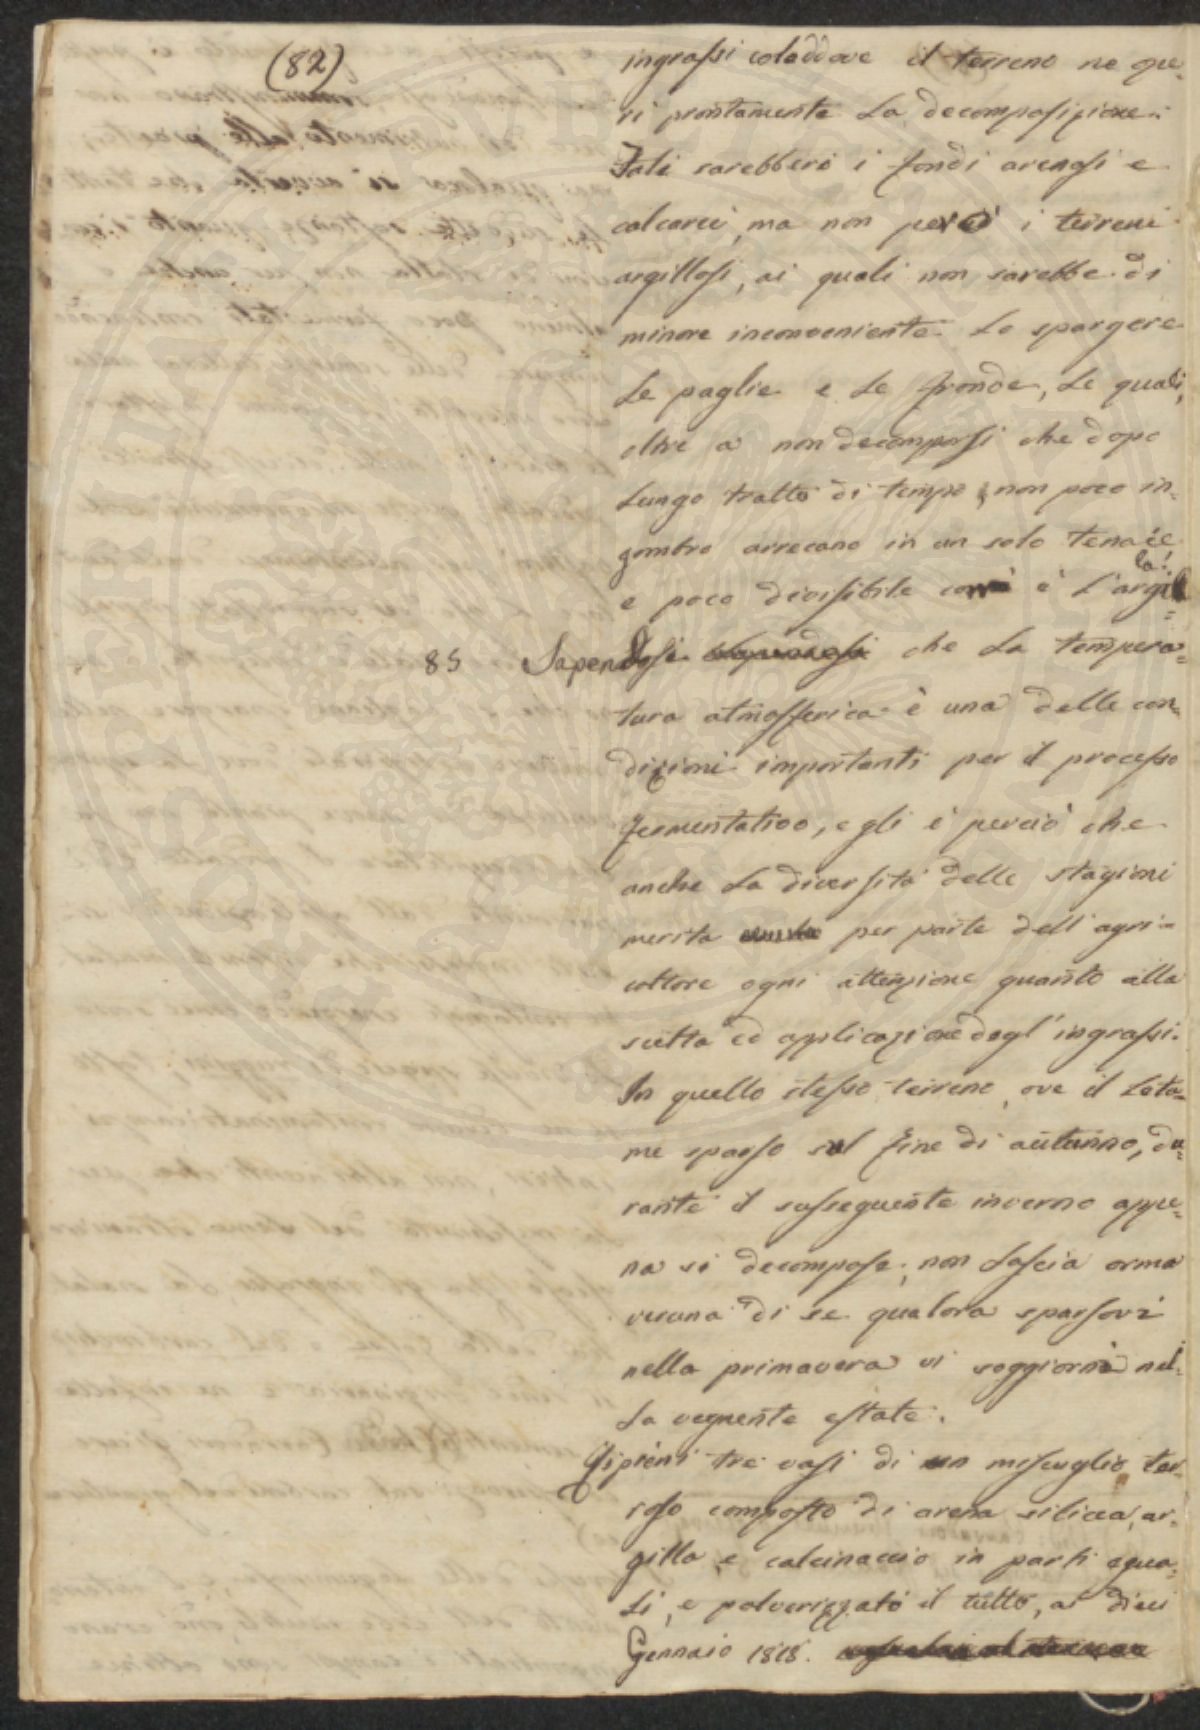 (82)
ingrassi coladdove il terreno ne ope=
ri prontamente la decomposizione.
Tali sarebbero i fondi arenosi e
calcarei, ma non però i terreni
argillosi, ai quali non sarebbe di
minore inconveniente lo spargere
le paglie e le fronde, le quali,
oltre a non decomporsi che dopo
lungo tratto di tempo, non poco in=
gombro arrecano in un solo tenace
e poco divisibile com'è l'argil=
la.
85 Sapendosi che la tempera=
tura atmosferica è una delle con=
dizioni importanti per il processo
fermentativo, egli è perciò che
anche la diversità delle stagioni
merita per parte dell'agri=
coltore ogni attenzione quanto alla
scelta ed applicazione degl'ingrassi.
In quello stesso terreno, ove il leta=
me sparso sul fine di autunno, du=
rante il susseguente inverno appe=
na si decompose, non lascia orma
veruna di se qualora sparsovi
nella primavera vi soggiorni nel=
la vegnente estate.
Si pieni tre vasi di un mescuglio ter=
roso composto di arena silicea, ar=
gilla, e calcinaccio in parti egua=
li, e polverizzato il tutto, ai dieci
Gennaio 1818.